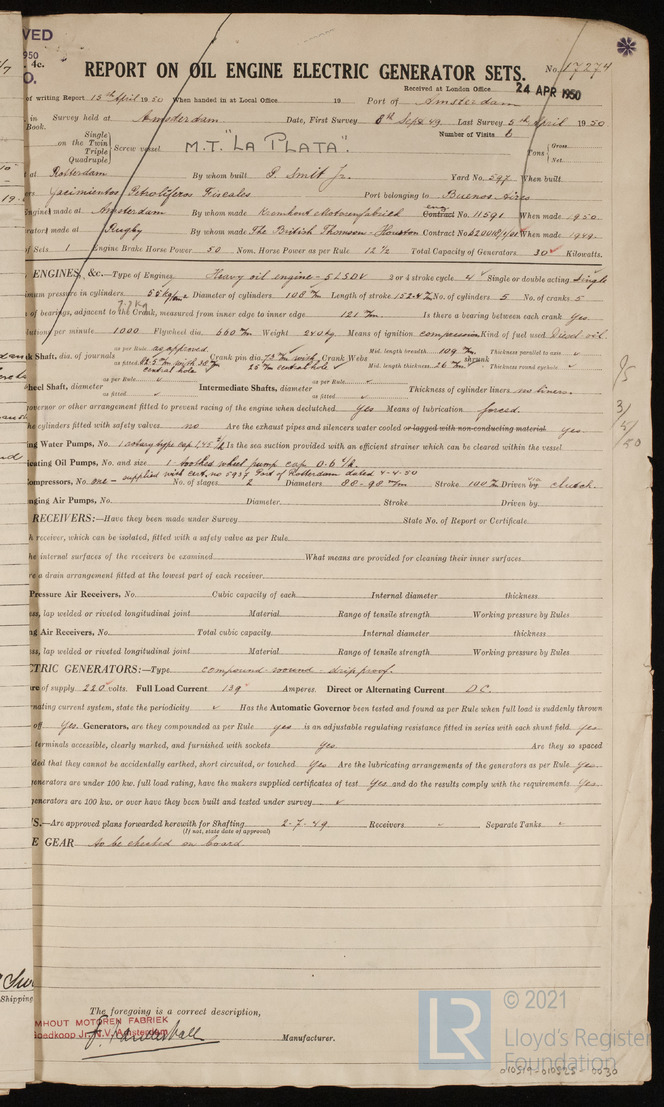 VED
950
4c.
O.
REPORT ON OIL ENGINE ELECTRIC GENERATOR SETS. No. 17274
Received at London Office 24 APR 1950
of writing Report 15th April 1950 When handed in at Local Office 19 Port of Amsterdam
in Survey held at Amsterdam Date, First Survey 8th Sept 49 Last Survey 5th April 1950
Book. Number of Visits 6
Single
on the Twin
Triple
Quadruple
Screw vessel M.T. "LA PLATA". Tons Gross
Net
at Rotterdam By whom built J. Smit Jr. Yard No. 597 When built
Yacimientos Petroliferos Fiscales Port belonging to Buenos Aires
Engines made at Amsterdam By whom made Kromhout Motorenfabriek eng. Contract No. 11591 When made 1950
made at Rugby By whom made The British Thomson-Houston Contract No. When made 1949
of Sets 1 Engine Brake Horse Power 50 Nom. Horse Power as per Rule 12½ Total Capacity of Generators 30 Kilowatts.
ENGINES, &c.—Type of Engines Heavy oil engine - 5LSDV 2 or 4 stroke cycle 4 Single or double acting single
mum pressure in cylinders 55 kg/cm² Diameter of cylinders 108 m/m Length of stroke 152.4 m/m No. of cylinders 5 No. of cranks 5
of bearings, adjacent to the Crank, measured from inner edge to inner edge 121 m/m. Is there a bearing between each crank Yes
lutions per minute 1000 Flywheel dia. 660 m/m Weight 240 kg Means of ignition compression Kind of fuel used Diesel oil.
k Shaft, dia. of journals as per Rule as approved as fitted central hole Crank pin dia. 73 m/m with 25 m/m central hole Crank Webs Mid. length breadth 109 m/m Thickness parallel to axis
Mid. length thickness 26 m/m shrunk Thickness round eyehole
heel Shaft, diameter as per Rule as fitted Intermediate Shafts, diameter as per Rule as fitted Thickness of cylinder liners no liners.
governor or other arrangement fitted to prevent racing of the engine when declutched Yes Means of lubrication forced.
he cylinders fitted with safety valves no Are the exhaust pipes and silencers water cooled or lagged with non-conducting material yes.
ing Water Pumps, No. 1 rotary type cap. Is the sea suction provided with an efficient strainer which can be cleared within the vessel
icating Oil Pumps, No. and size 1 toothed wheel pump cap.
supplied with cert. no 5937 Port of Rotterdam dated 4-4-50
ompressors, No. one - No. of stages 2 Diameters 88-90 m/m Stroke 100 m/m Driven by clutch.
nging Air Pumps, No. Diameter Stroke Driven by
RECEIVERS:—Have they been made under Survey State No. of Report or Certificate
h receiver, which can be isolated, fitted with a safety valve as per Rule
he internal surfaces of the receivers be examined What means are provided for cleaning their inner surfaces
re a drain arrangement fitted at the lowest part of each receiver
Pressure Air Receivers, No. Cubic capacity of each Internal diameter thickness
ess, lap welded or riveted longitudinal joint Material Range of tensile strength Working pressure by Rules
ng Air Receivers, No. Total cubic capacity Internal diameter thickness
ess, lap welded or riveted longitudinal joint Material Range of tensile strength Working pressure by Rules
CTRIC GENERATORS:—Type compound-wound - drip proof.
ure of supply 220 volts. Full Load Current 139 Amperes. Direct or Alternating Current D.C.
nating current system, state the periodicity Has the Automatic Governor been tested and found as per Rule when full load is suddenly thrown
off Yes. Generators, are they compounded as per Rule yes is an adjustable regulating resistance fitted in series with each shunt field. yes
terminals accessible, clearly marked, and furnished with sockets Yes Are they so spaced
ded that they cannot be accidentally earthed, short circuited, or touched Yes Are the lubricating arrangements of the generators as per Rule Yes
generators are under 100 kw. full load rating, have the makers supplied certificates of test Yes and do the results comply with the requirements Yes
generators are 100 kw. or over have they been built and tested under survey
S.—Are approved plans forwarded herewith for Shafting 2-7-49 Receivers Separate Tanks
(If not, state date of approval)
E GEAR to be checked on board
The foregoing is a correct description,
MHOUT MOTOREN FABRIEK
oedkoop Jr. N.V. Amsterdam
Manufacturer.
Shipping
LR
© 2021
Lloyd's Register
Foundation
010519-010525-0030